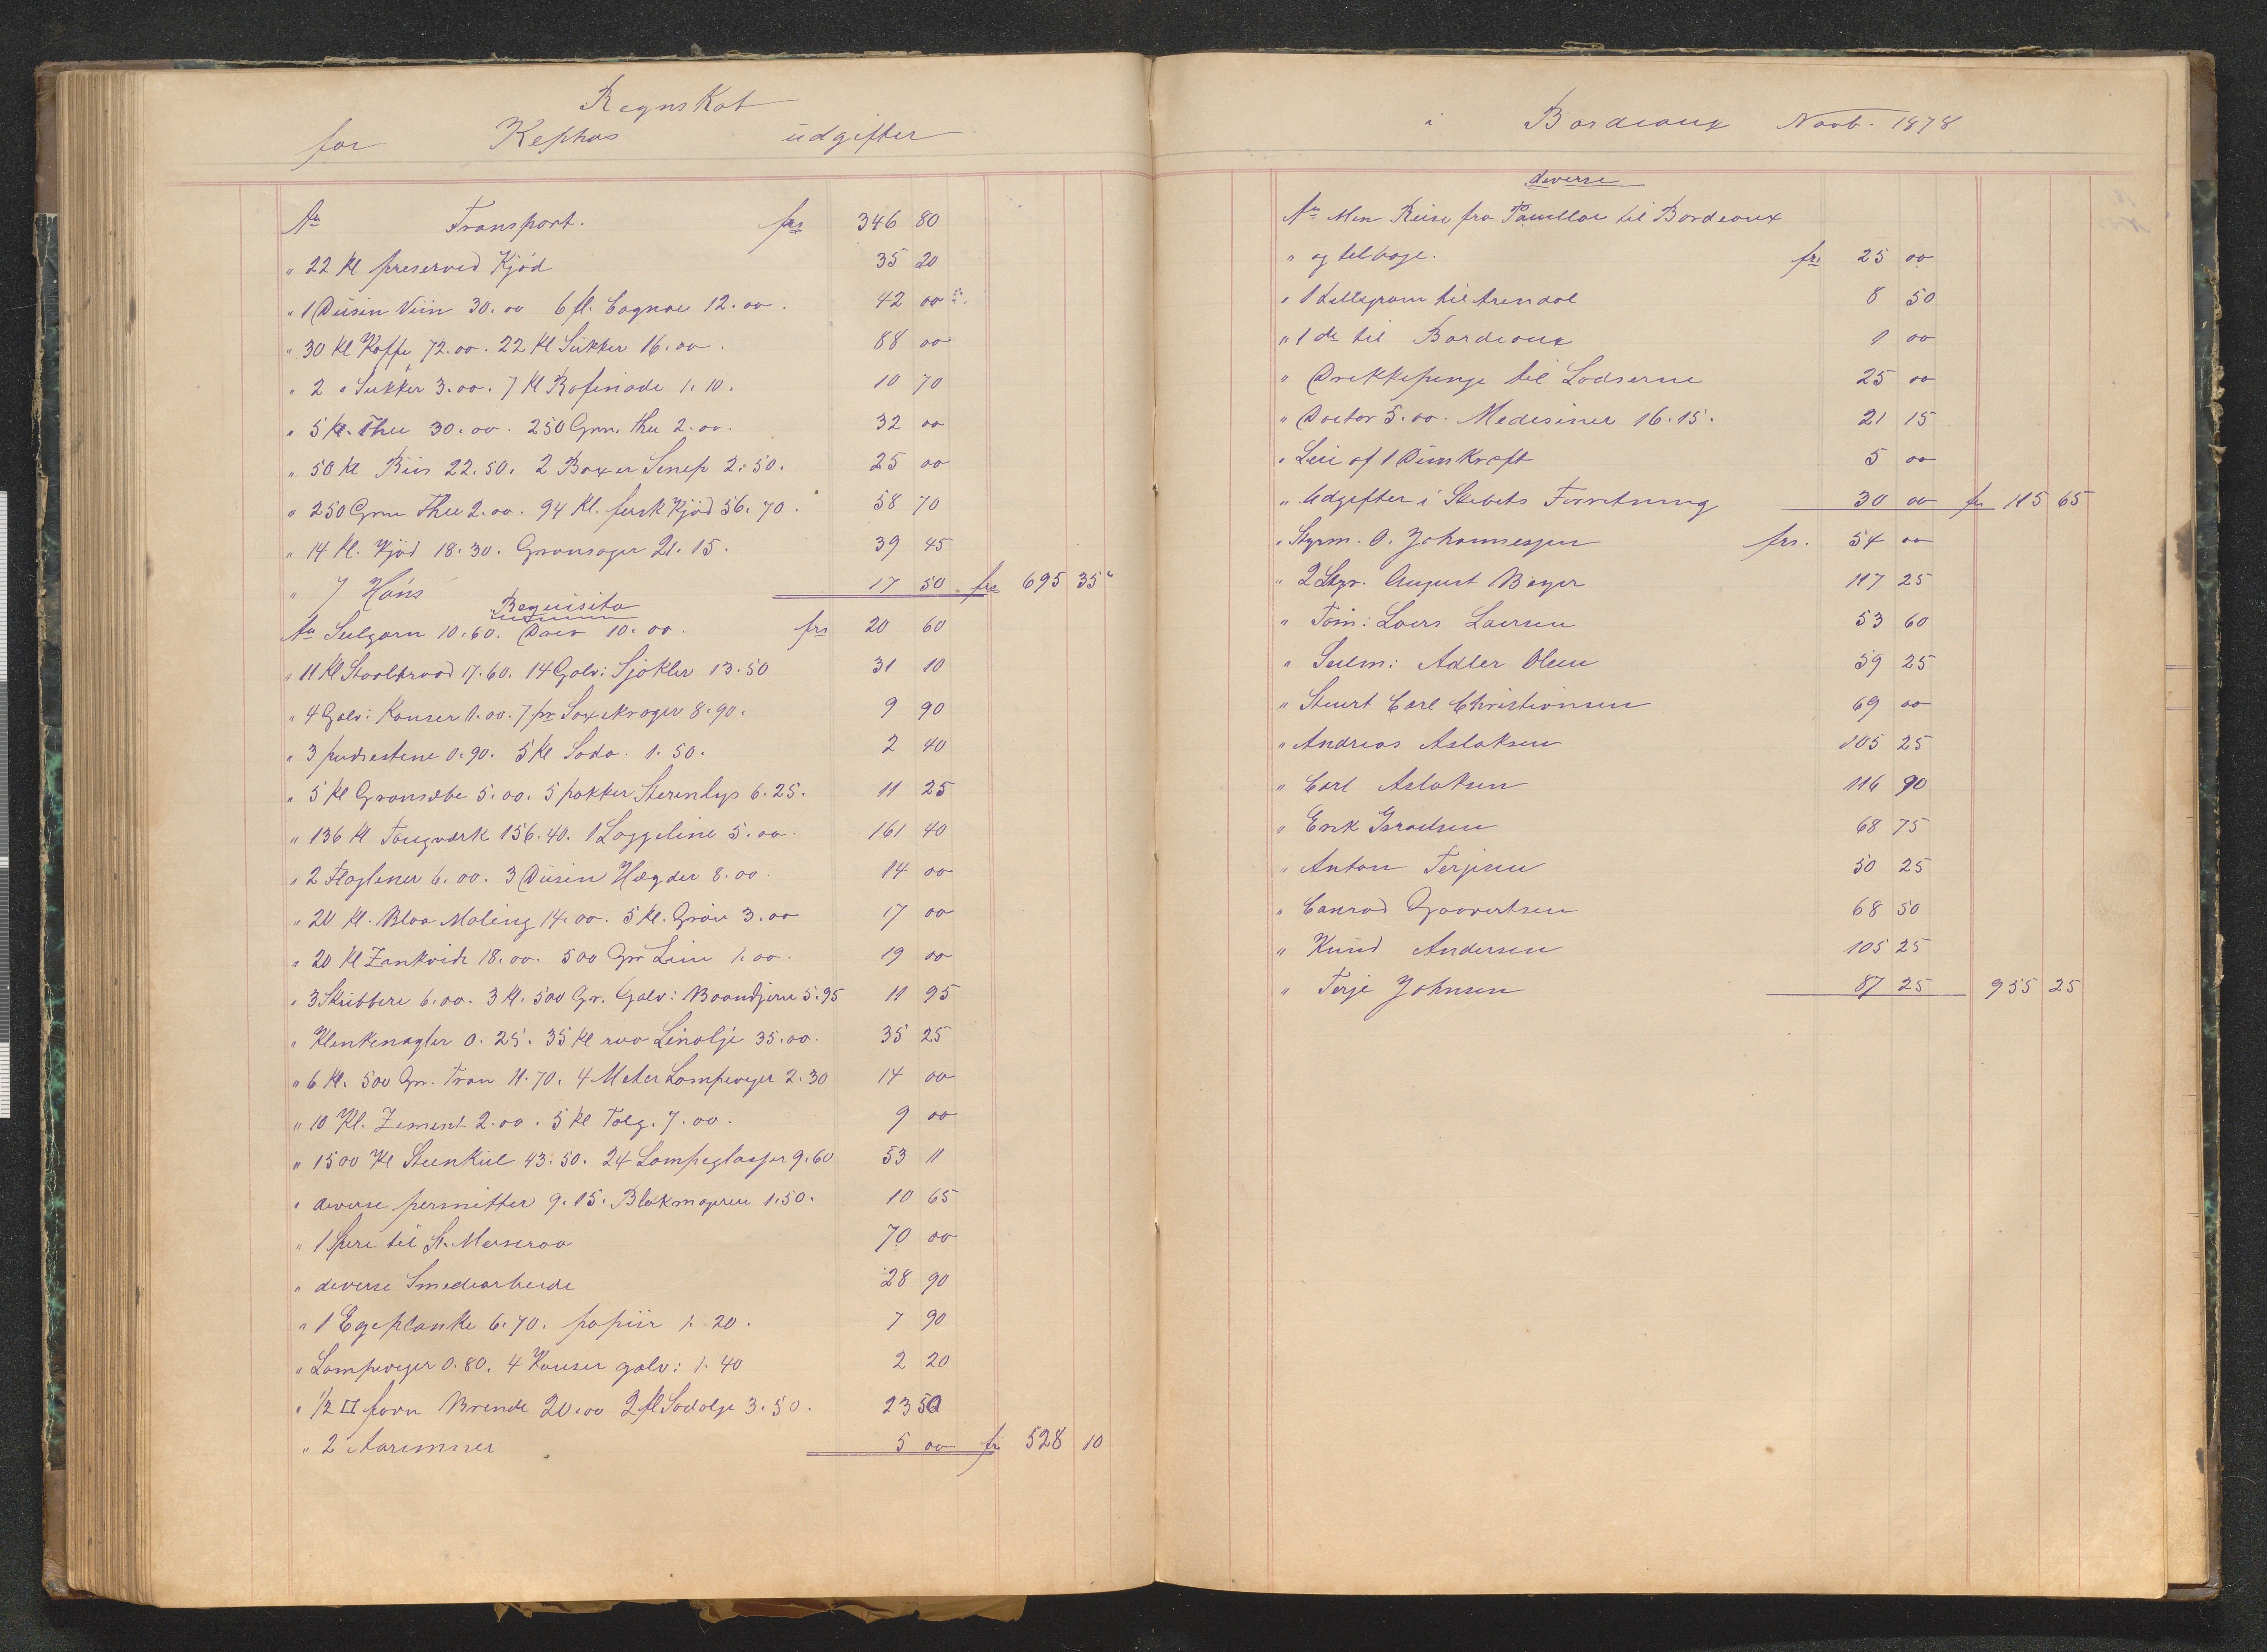 Regnskab
for Kephas udgifter
An Transport. frs 346 80
" 22 Kl preserved Kjød 35 20
" 1 Dusin Viin 30.00 6 fl. Cognac 12.00. 42 00
" 30 Kl Kaffe 72.00. 22 Kl Sukker 16.00. 88 00
" 2 " Sukker 3.00. 7 Kl Rafinade 1.10. 10 70
" 5 Kl. Thee 30.00. 250 Grm. thee 2.00. 32 00
" 50 Kl Riis 22.50. 2 Boxer Senep 2.50. 25 00
" 250 Grm Thee 2.00. 94 Kl. fersk Kjød 56.70. 58 70
" 14 Kl. Kjød 18.30. Grønsager 21.15. 39 45
" 7 Høns 17 50. frs 695 35
Requisita
An Seilgarn 10.60. Drev 10.00. frs 20 60
" 11 Kl Staaltraad 17.60. 14 Galv: Sjøkler 13.50 31 10
" 4 Galv: Kauser 1.00. 7 pr Saxekroger 8.90. 9 90
" 3 pudsestene 0.90. 5 Kl Soda. 1.50. 2 40
" 5 Kl Grønsæbe 5.00. 5 pakker Sterinlys 6.25. 11 25
" 136 Kl Tougværk 156.40. 1 Loggeline 5.00. 161 40
" 2 Flagliner 6.00. 3 Dusin Hægder 8.00. 14 00
" 20 Kl. Blaa Maling 14.00. 5 Kl. Grøn 3.00 17 00
" 20 Kl Zinkvidt 18.00. 500 Gr Lim 1.00. 19 00
" 3 Skubbere 6.00. 3 Kl. 500 Gr. Galv: Baandjern 5.95 11 95
" Klinkenagler 0.25. 35 Kl raa Linolje 35.00. 35 25
" 6 Kl. 500 Gr. Tran 11.70. 4 Meter Lampeveger 2.30 14 00
" 10 Kl. Zement 2.00. 5 Kl Talg. 7.00. 9 00
" 1500 Kl Steenkul 43.50. 24 Lampeglasser 9.60 53 11
" diverse permitter 9.15. Blokmageren 1.50. 10 65
" 1 Spire til St. Merseraa 70 00
" diverse Smedearbeide 28 90
" 1 Egeplanke 6.70. papiir 1.20. 7 90
" Lampeveger 0.80. 4 Kauser galv: 1.40 2 20
" 1/2 □ favn Brænde 20.00 2 fl Sodolje 3.50. 23 50
" 2 Aaremner 5 00 fr 528 10
i Bordeaux Novb. 1878
diverse
An Min Reise fra Pauillac til Bordeaux
" og tilbage. frs 25 00
" 1 Tellegram til Arendal 8 50
" 1 do til Bordeaux 1 00
" Drikkepenge til Lodserne 25 00
" Doctor 5.00. Medesiner 16.15. 21 15
" Leie af 1 Dunkraft 5 00
" Udgifter i Skibets Forretning 30 00 fr 115 65
" Styrm. O. Johannessen frs. 54 00
" 2 Styr. August Beyer 117 25
" Tøm: Laers Laersen 53 60
" Seilm: Adler Olsen 59 25
" Stuert Carl Christiansen 69 00
" Andreas Aslaksen 105 25
" Carl Aslaksen 116 90
" Erik Israelsen 68 75
" Anton Terjesen 50 25
" Conrad Govertsen 68 50
" Knud Andersen 105 25
" Terje Johnsen 87 25 955 25